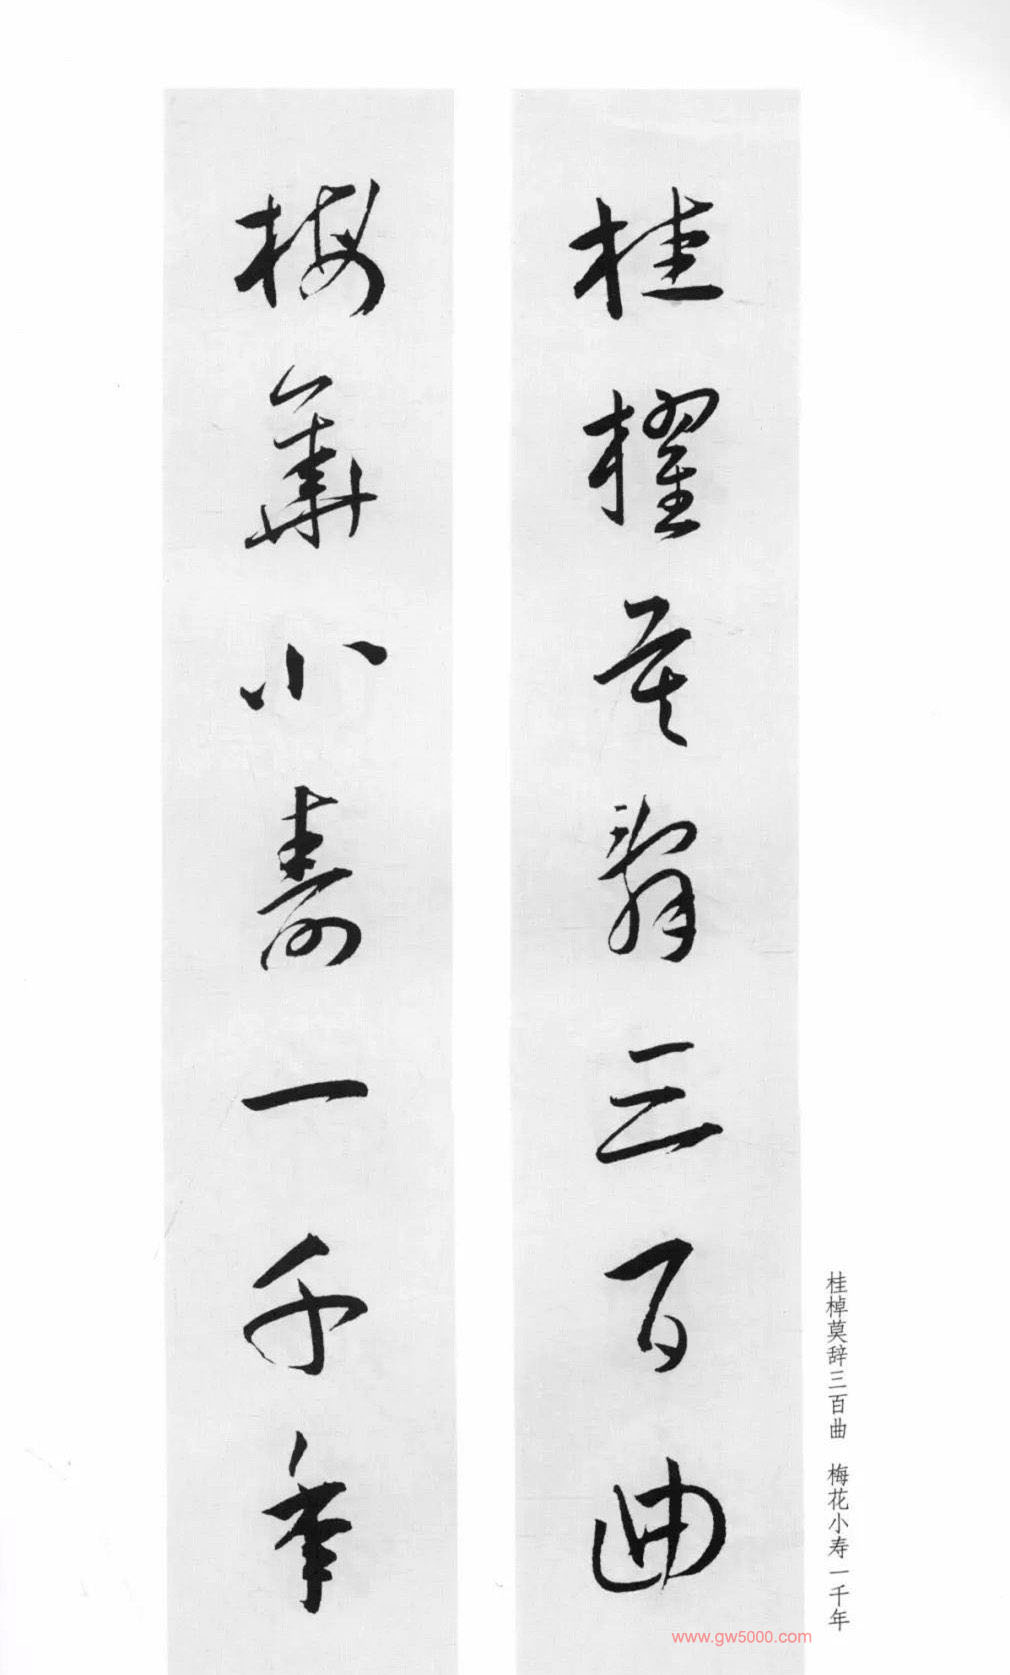 桂櫂莫辭三百曲
梅華小壽一千年
桂棹莫辞三百曲 梅花小寿一千年
www.gw5000.com